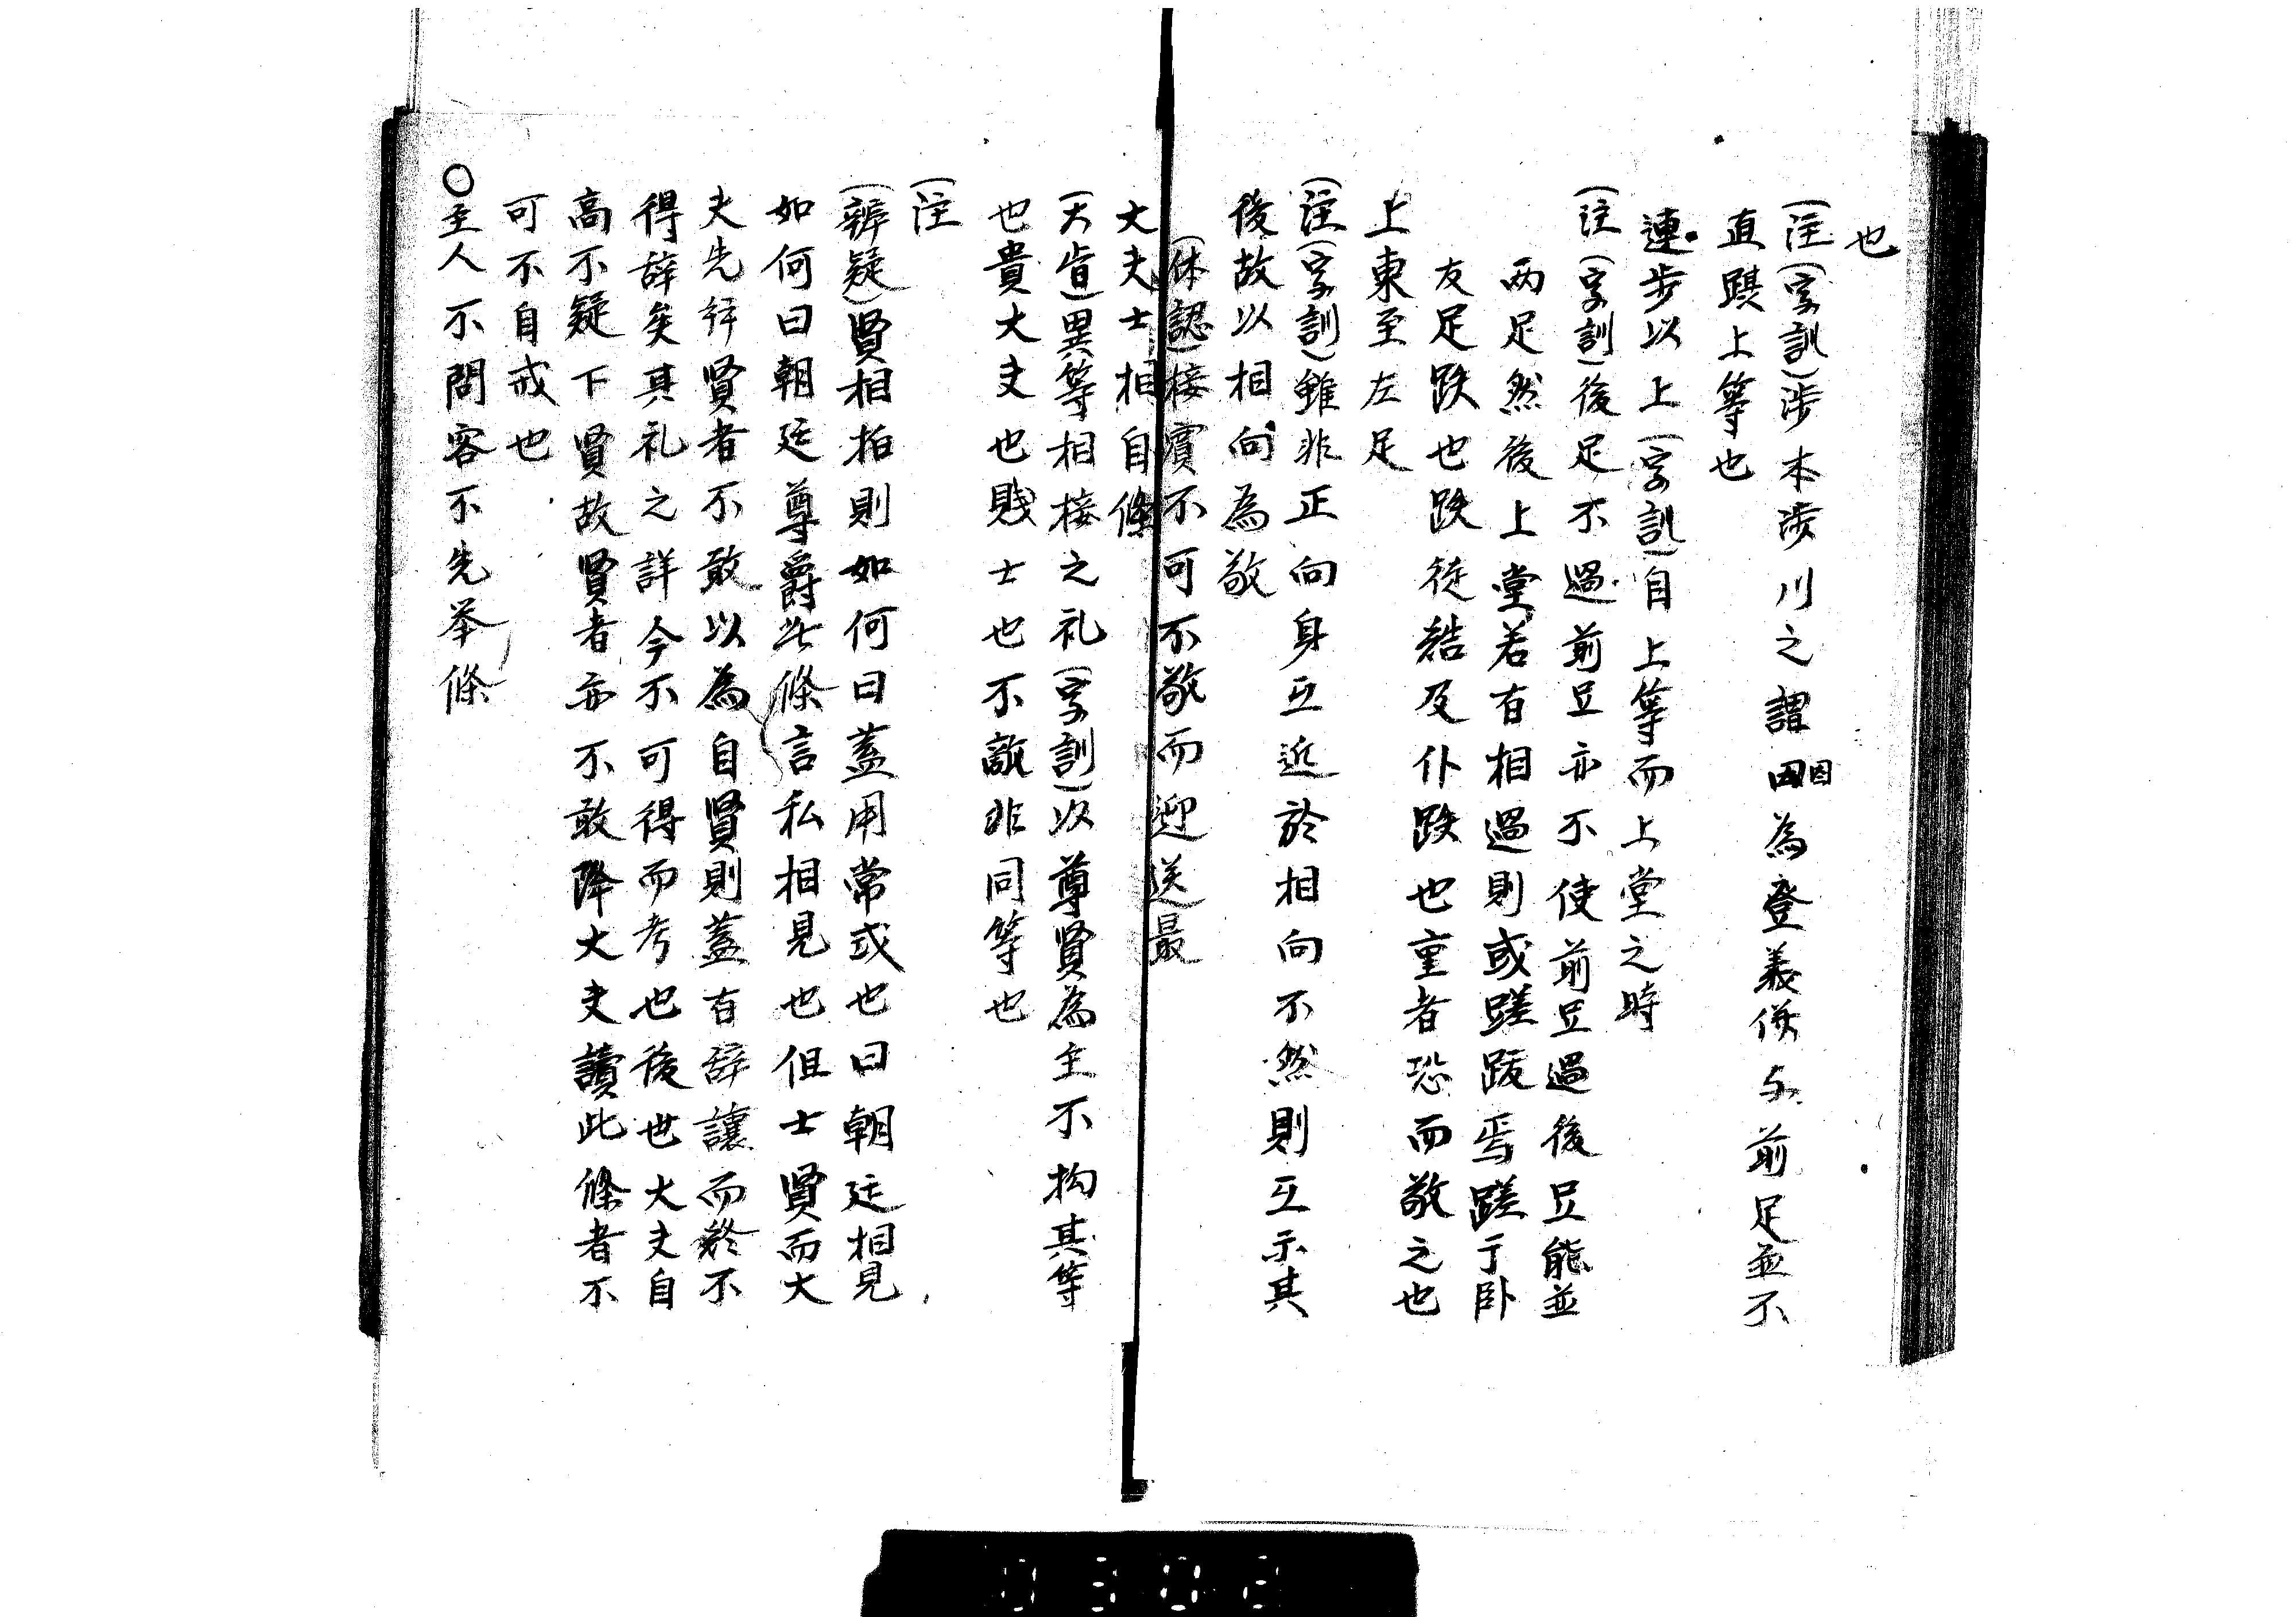 也
(注)(字訓)涉本涉川之謂因為登義併与前足並不
直躐上等也
連步以上(字訓)自上等而上堂之時
(注)(字訓)後足不過前足亦不使前足過後足能並
两足然後上堂若有相過則或蹉跌焉蹉于卧
友足跌也跌徒結及仆跌也重者恐而敬之也
上東至左足
(注)(字訓)雖非正向身互近於相向不然則互示其
後故以相向為敬
(体認)接賓不可不敬而迎送最
大夫士相自條
(大旨)異等相接之礼(字訓)以尊賢為主不拘其等
也貴大夫也賤士也不敵非同等也
(注)
(辨疑)賢相拍則如何曰蓋用常或也曰朝廷相見
如何曰朝廷尊爵此條言私相見也但士賢而大
夫先拜賢者不敢以為自賢則蓋有辞讓而終不
得辞矣其礼之詳今不可得而考也後世大夫自
高不疑下賢故賢者亦不敢降大夫讀此條者不
可不自戒也
○主人不問客不先举條
0302